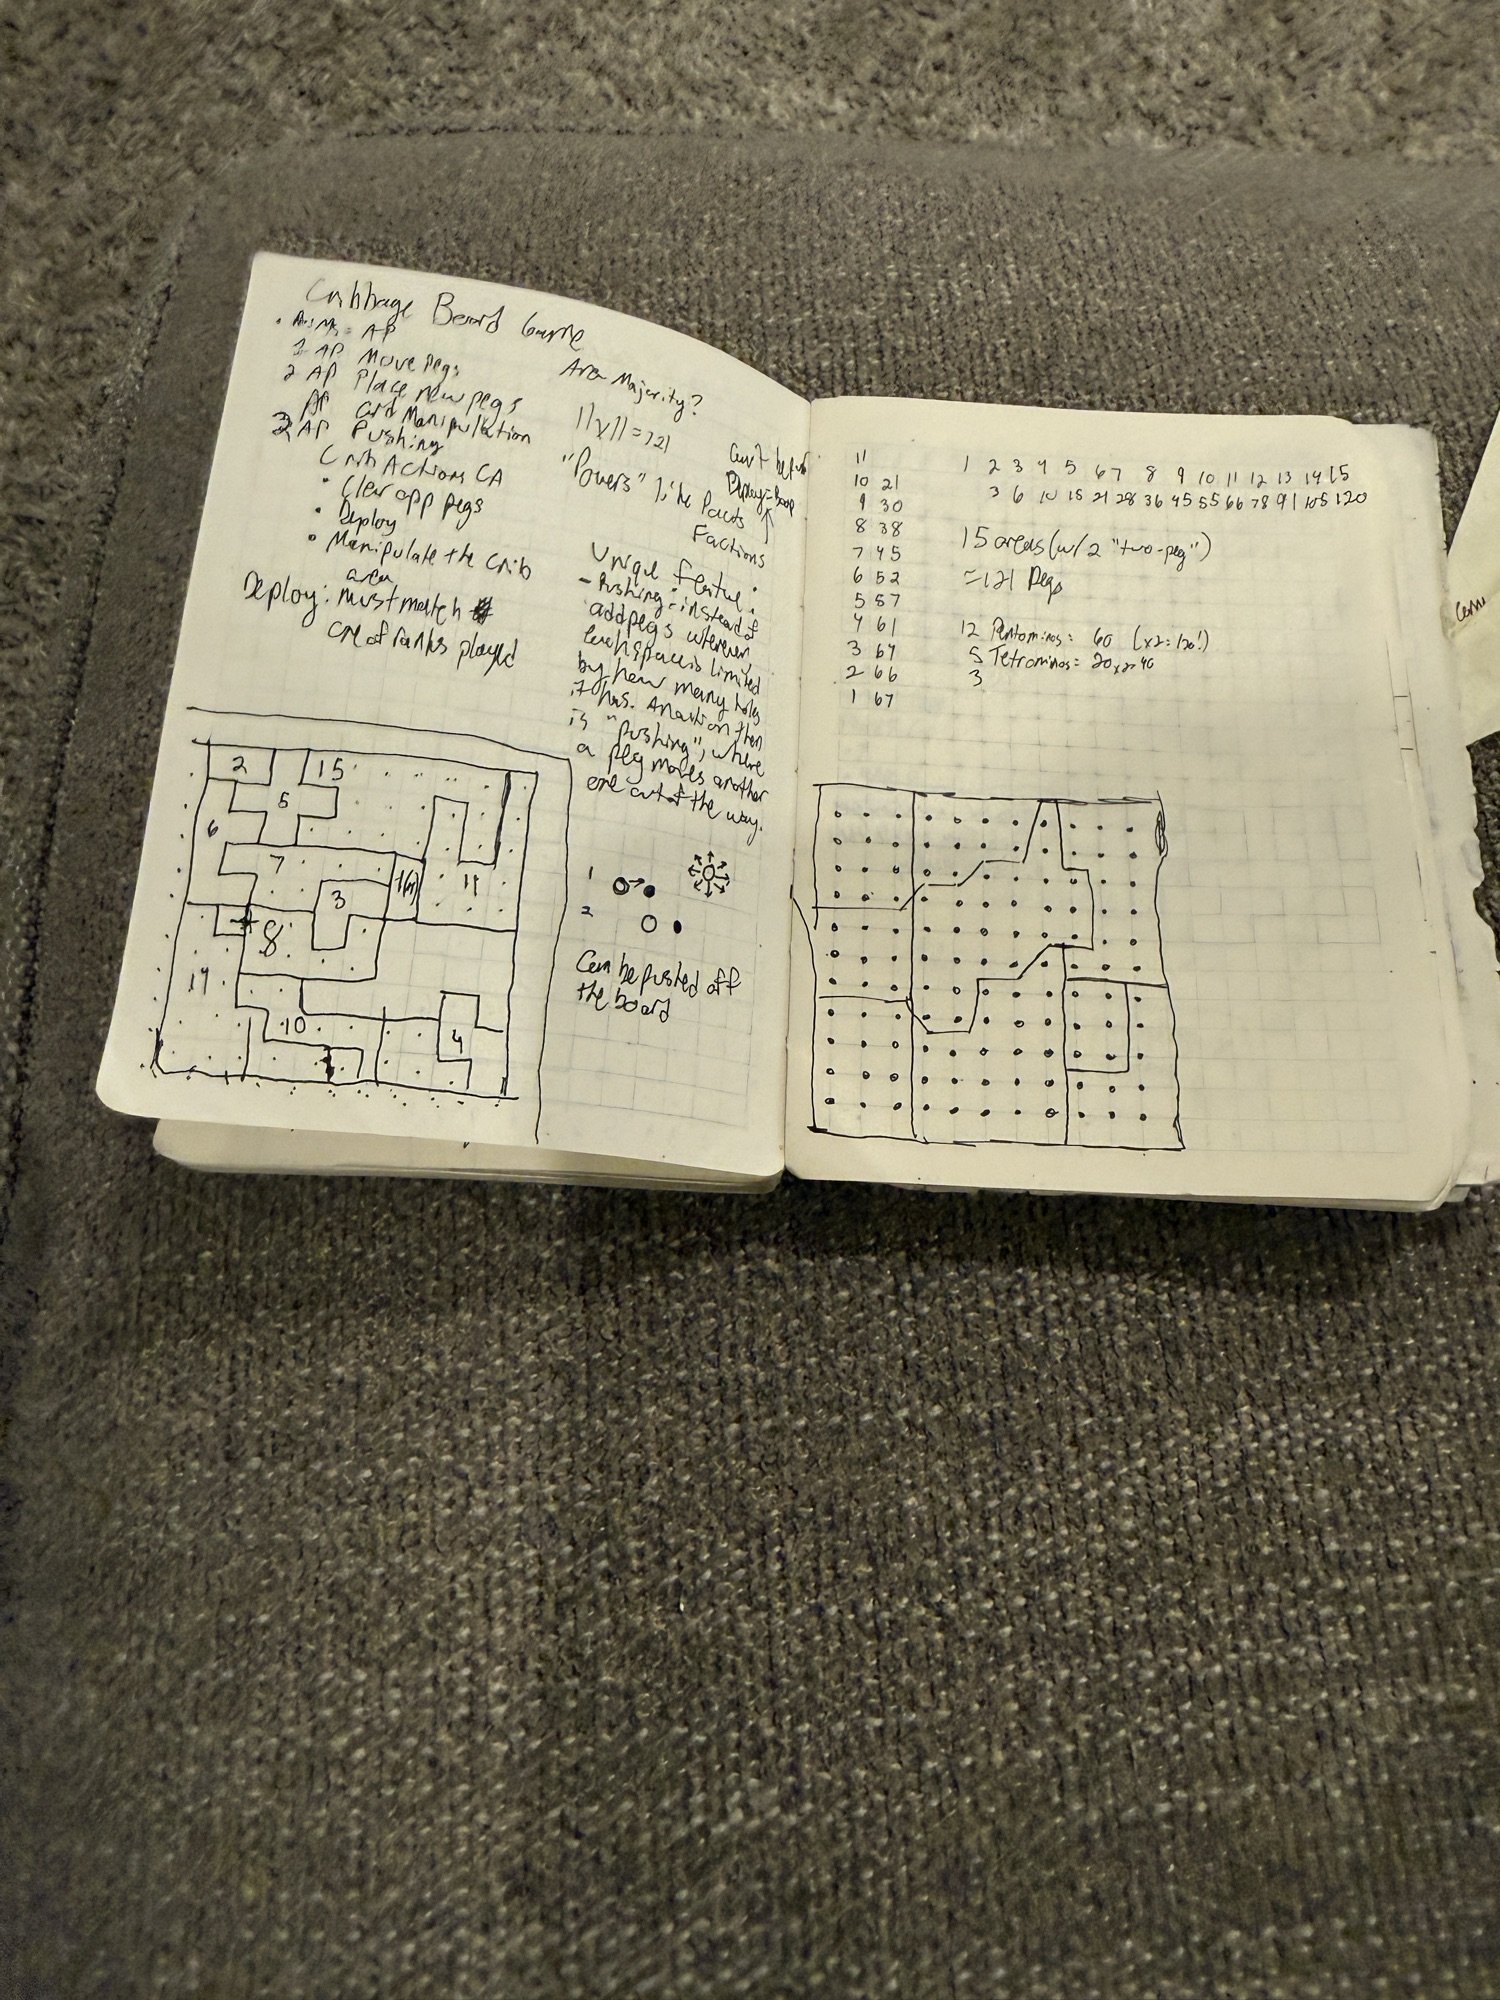 Cribbage Board Game
AP
1 AP Move Pegs
2 AP Place new pegs
AP Card Manipulation
3 AP Pushing
Crib Actions CA
• Clear opp pegs
• Deploy
• Manipulate the Crib
area
Deploy: must match
one of ranks played
Area Majority?
11x11=121
"Powers" like Pacts
Can't be
Deploy
Factions
Unique feature:
- Pushing: instead of
add pegs wherever
each space is limited
by how many holes
it has. An action then
is "pushing", where
a peg moves another
one out of the way.
1
2
Can be pushed off
the board
2 15
5
6
7
3
11
8
14
10
4
11
10 21
9 30
8 38
7 45
6 52
5 57
4 61
3 64
2 66
1 67
1 2 3 4 5 6 7 8 9 10 11 12 13 14 15
3 6 10 15 21 28 36 45 55 66 78 91 105 120
15 areas (w/ 2 "two-peg")
=121 Pegs
12 Pentominos = 60 (x2=120!)
5 Tetrominos = 20 x2=40
3